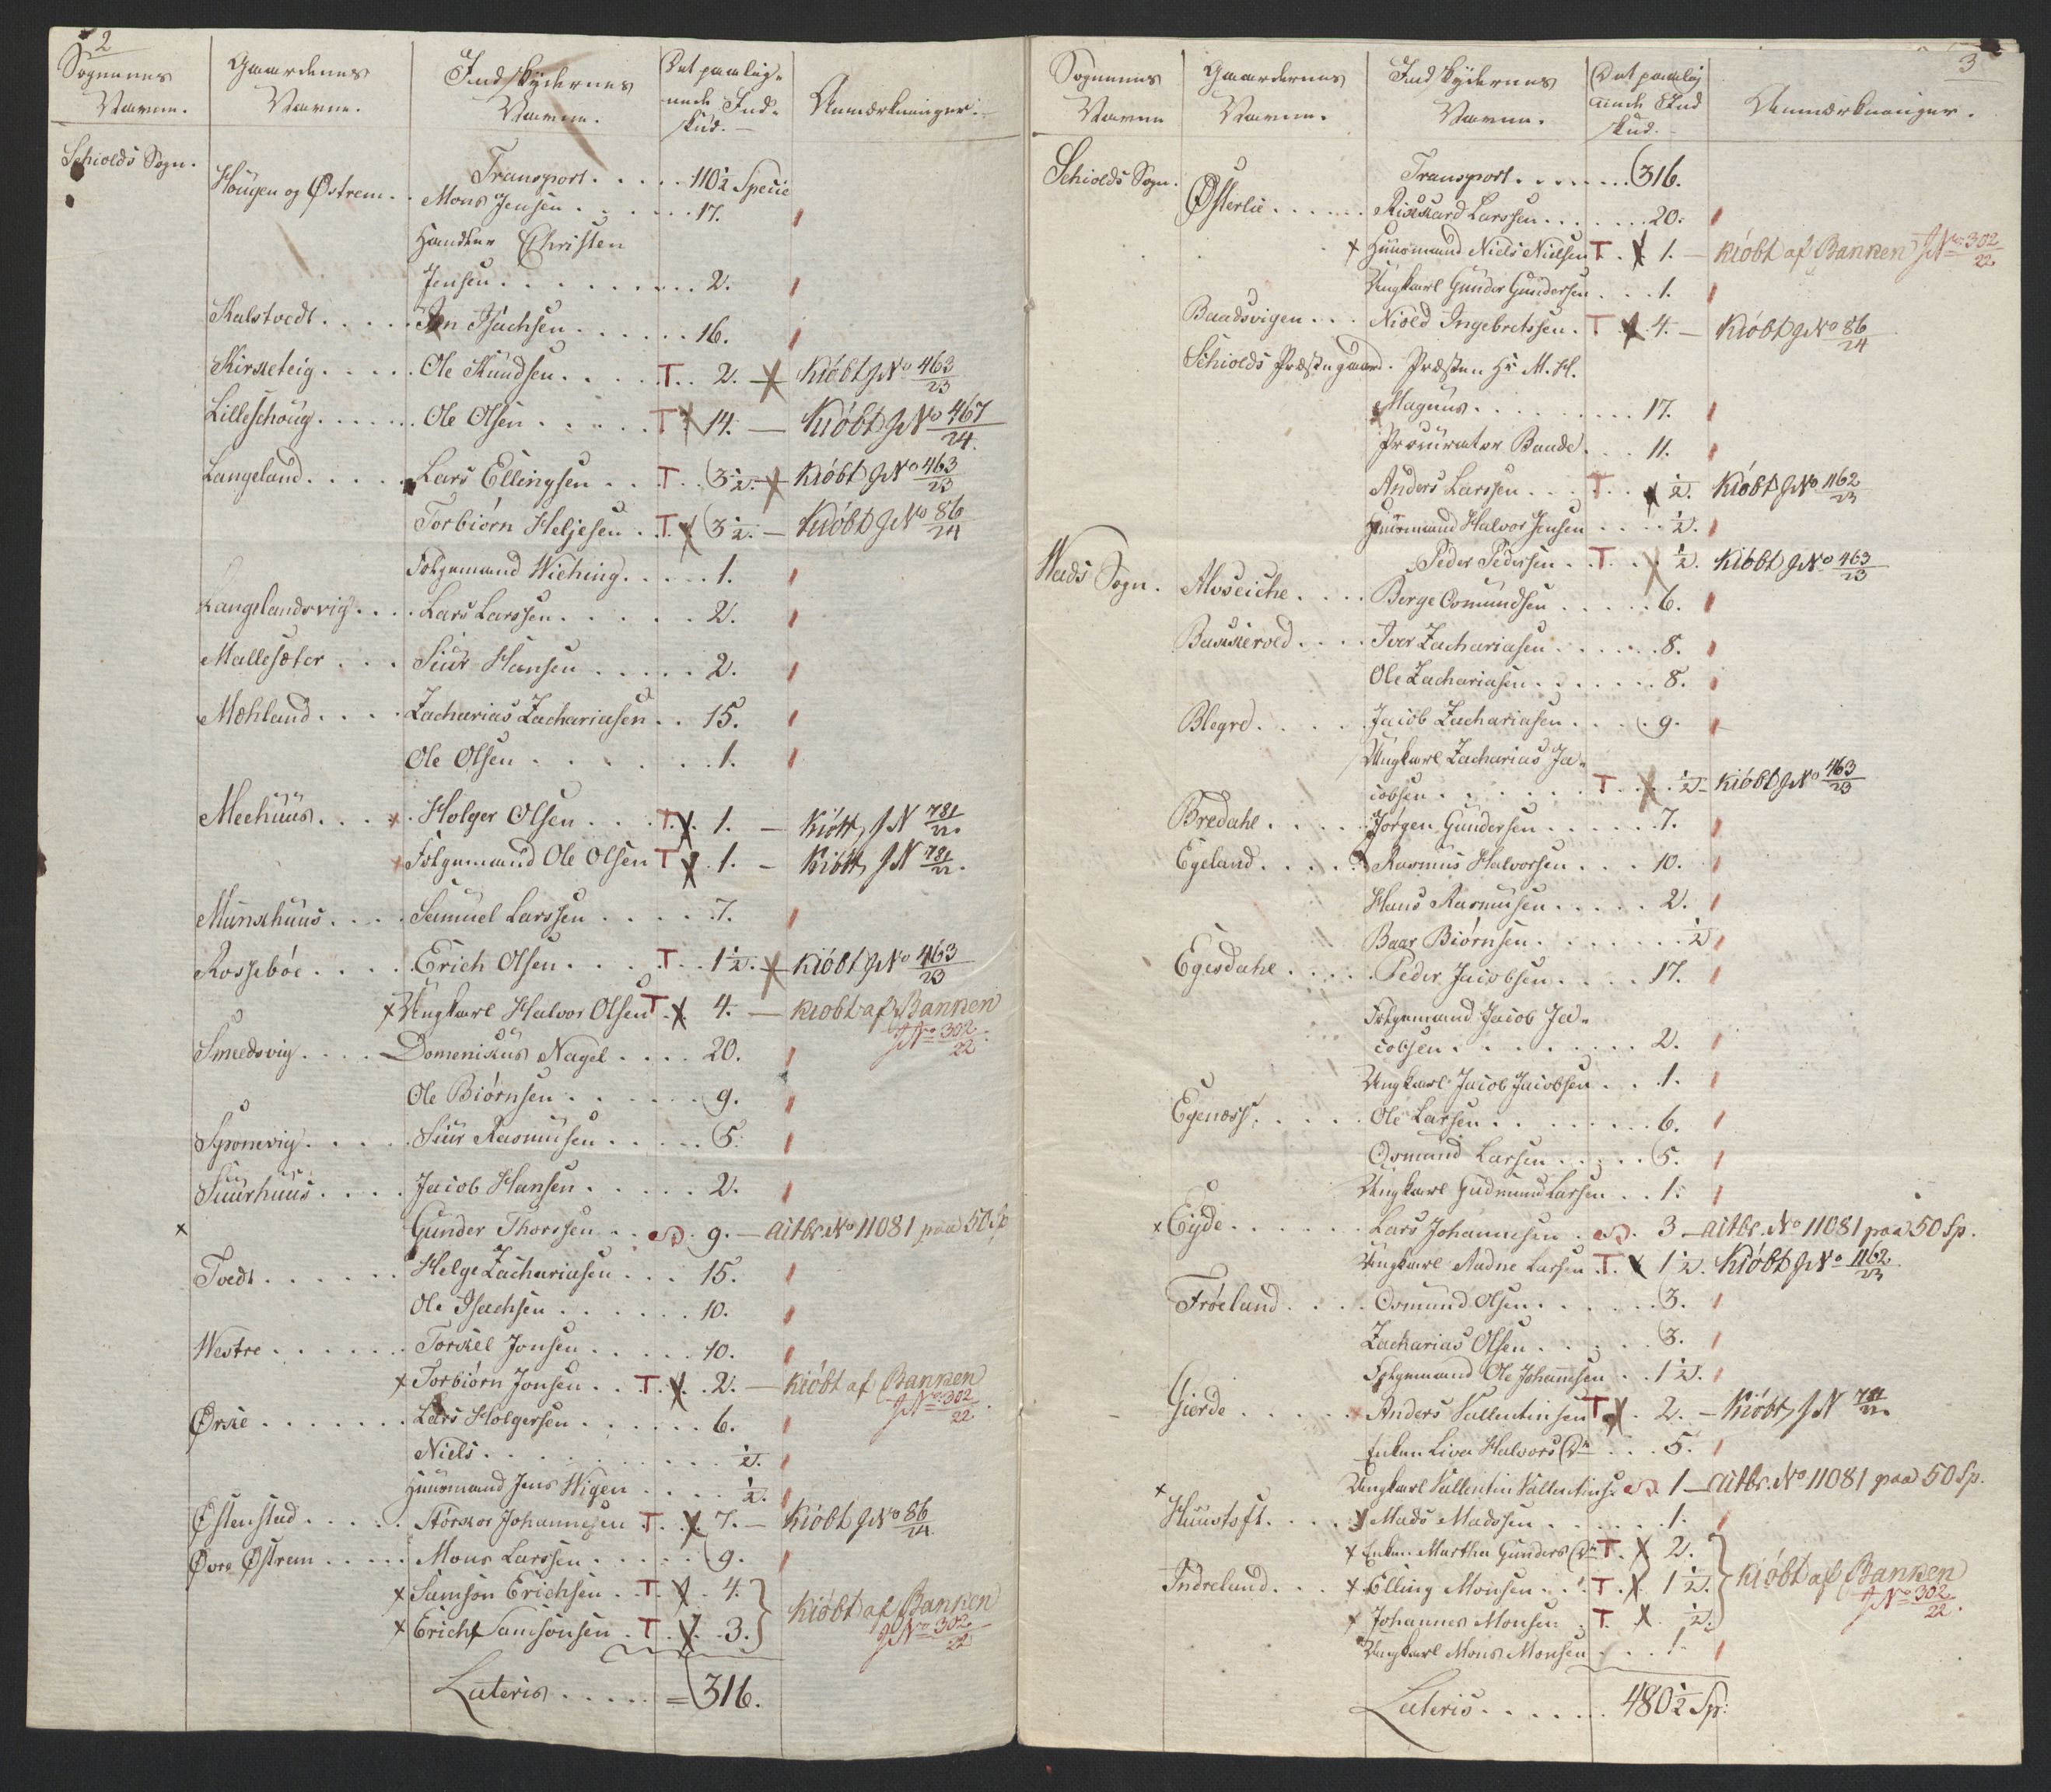 2
Sognenes Navne.
Gaardenes Navne.
Indskydernes Navne.
Det paalignede Indskud.
Anmærkninger.
Schiolds Sogn.
Transport . . . . . 110 1/2 Specie
Hougen og Østrem . . Mons Jensen . . . . . 17.
Christen
Jensen . . . . . . . . . 2.
Kalstvedt . . . . . Jon Isachsen . . . . . . 16.
Kirketeig . . . . . Ole Knudsen . . . . . T . . 2. — Kiöbt J No 463/23
Lilleschoug . . . . . . Ole Olsen . . . . . . T x 14. — Kiöbt J No 467/24.
Langeland . . . . . Lars Ellingsen . . T . . 3 1/2. x Kiöbt J No 463/23
Torbiørn Heljesen . T. x 3 1/2. — Kiöbt J No 86/24
Følgemand Wiching . . . . . 1.
Langelandsvig . . . . Lars Larssen . . . . . . 2.
Mallesæter . . . Siur Hansen . . . . . 2.
Mæhland . . . . Zacharias Zachariasen . . 15.
Ole Olsen . . . . . . . 1.
Meehuus . . . x . Holger Olsen . . . . T. x. 1. — Kiött, J N 781/22.
x Følgemand Ole Olsen T x . 1. — Kiött, J N 781/22.
Munkhuus . . . . Samuel Larssen . . . . . 7.
Rossebøe . . . . . Erich Olsen . . . . T . . 1 1/2. x Kiöbt J No 463/23
x Ungkarl Halvor Olsen T . x. 4. — kiöbt af Banken
J No 302/22.
Smedsvig . . . . Domenikus Nagel . . . . 20.
Ole Biørnsen . . . . . . . 9.
Sponevig . . . . . Siur Rasmusen . . . . . 5.
Suurhuus . . . . Jacob Hansen . . . . . 2.
x Gunder Thorssen . . . 9. — aitbr. No 11081 paa 50 Sp
Tvedt . . . . . . Helge Zachariasen . . . 15.
Ole Isachsen . . . . . . 10.
Westre . . . . . . Torkel Jonsen . . . . . 10.
x Torbiørn Jonsen . . T . x. . 2. — kiöbt af Banken
J No 302/22.
Ørke . . . . . . . Lars Holgersen . . . . . . 6.
Niels . . . . . . . . . . 1/2.
Huusmand Jens Wigen . . . . 1/2.
Østenstad . . . . . Storkor Johannesen T . . x 7. — Kiöbt J No 86/24.
Øvre Østrem . . . . . Mons Larssen . . . . . 9.
x Samson Erichsen . . T . x . 4.
x Erich Samsonsen . T . x . . 3. kiöbt af Banken
J No 302/22
Lateris . . . . . = 316.
3
Sognenes Navne
Gaardenes Navne.
Indskydernes Navne.
Det paalignende Indskud.
Anmærkninger.
Schiolds Sogn.
Transport . . . . . . . 316.
Østerlie . . . . . . Rikkard Larssen . . . . . . 20.
x Huusmand Niels Nielsen T . x 1. — kiöbt af Banken J No 302/22
Ungkarl Gunder Gundersen . . . 1.
Baadsvigen . . . Niold Ingebretssen . T x 4. — Kiöbt J No 86/24
Schiolds Præstegaard . Præsten Hr M. H.
Magnus . . . . . . . . . 17.
Procurator Baade . . . 11.
Anders Larssen . . . T . . x 1/2. Kiöbt J No 1162/23
Huusmand Halvor Jensen . . . . 1/2.
Peder Pedersen . . T . . x 1/2. Kiöbt J No 463/23
Wads Sogn. Alvseiche . . . . Børge Osmundsen . . . . . 6.
Bakkevold . . . . Iver Zachariasen . . . . . . 8.
Ole Zachariasen . . . . . . . 8.
Blegre . . . . . . Jacob Zachariasen . . . . 9.
Ungkarl Zacharias Ja-
cobsen . . . . . . . T . . x . 1/2 Kiöbt J No 463/23
Bredahl . . . . . Jørgen Gundersen . . . . . . 7.
Egeland . . . . . Rasmus Halvorsen . . . 10.
Hans Rasmusen . . . . . 2.
Baar Biørnsen . . . . . . . . 1/2
Egesdahl . . . . . Peder Jacobsen . . . . . 17.
Følgemand Jacob Ja-
cobsen . . . . . . . . . 2.
Ungkarl Jacob Jacobsen . . . 1.
Egenæss . . . . . . Ole Larsen . . . . . . . . 6.
Osmund Larsen . . . . . 5.
Ungkarl Gudmund Larsen . . 1.
x Eyde . . . . . . . Lars Johannesen . . 3 — aitbr. No 11081 paa 50 Sp.
Ungkarl Aadne Larsen . T . x 1 1/2. Kiöbt J No 1162/23
Frøeland . . . . . Osmund Olsen . . . . . . . 3.
Zacharias Olsen . . . . . 3.
Følgemand Ole Johannsen . . 1 1/2.
Gierde . . . . . x Anders Vallentinsen T x . 2. — Kiöbt, J N 781/22
Enken Liva Halvors Dr . . . 5.
x Ungkarl Vallentin Vallentins. . 1 — aitbr. No 11081 paa 50 Sp.
Huustoft . . . . x Mads Madssen . . . . . . 1.
x Enken Martha Gunders Dr T . x 2.
Indreland . . . x Elling Monsen . . . T . x. 1 1/2. kiöbt af Banken
x Johannes Monsen . T . x . 1/2. J No 302/22.
Ungkarl Mons Monsen . . . . 1.
Lateris . . . . . . . 480 1/2 Sp: